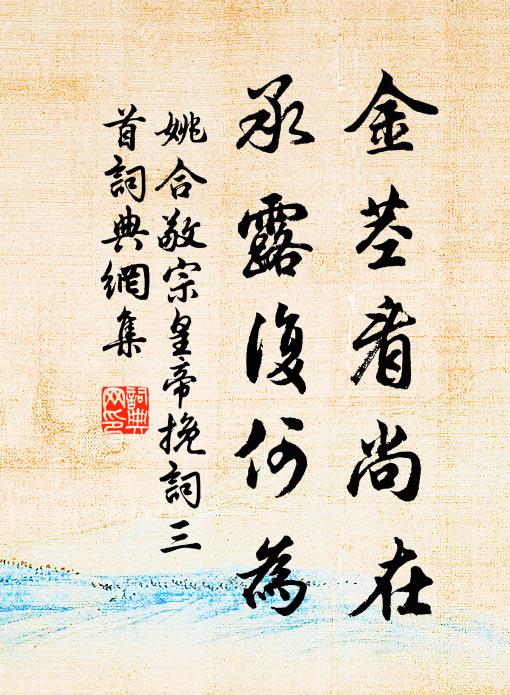 金莖看尚在
承露復何為
姚合敬宗皇帝挽詞三
首詞典網集
詞典
网印